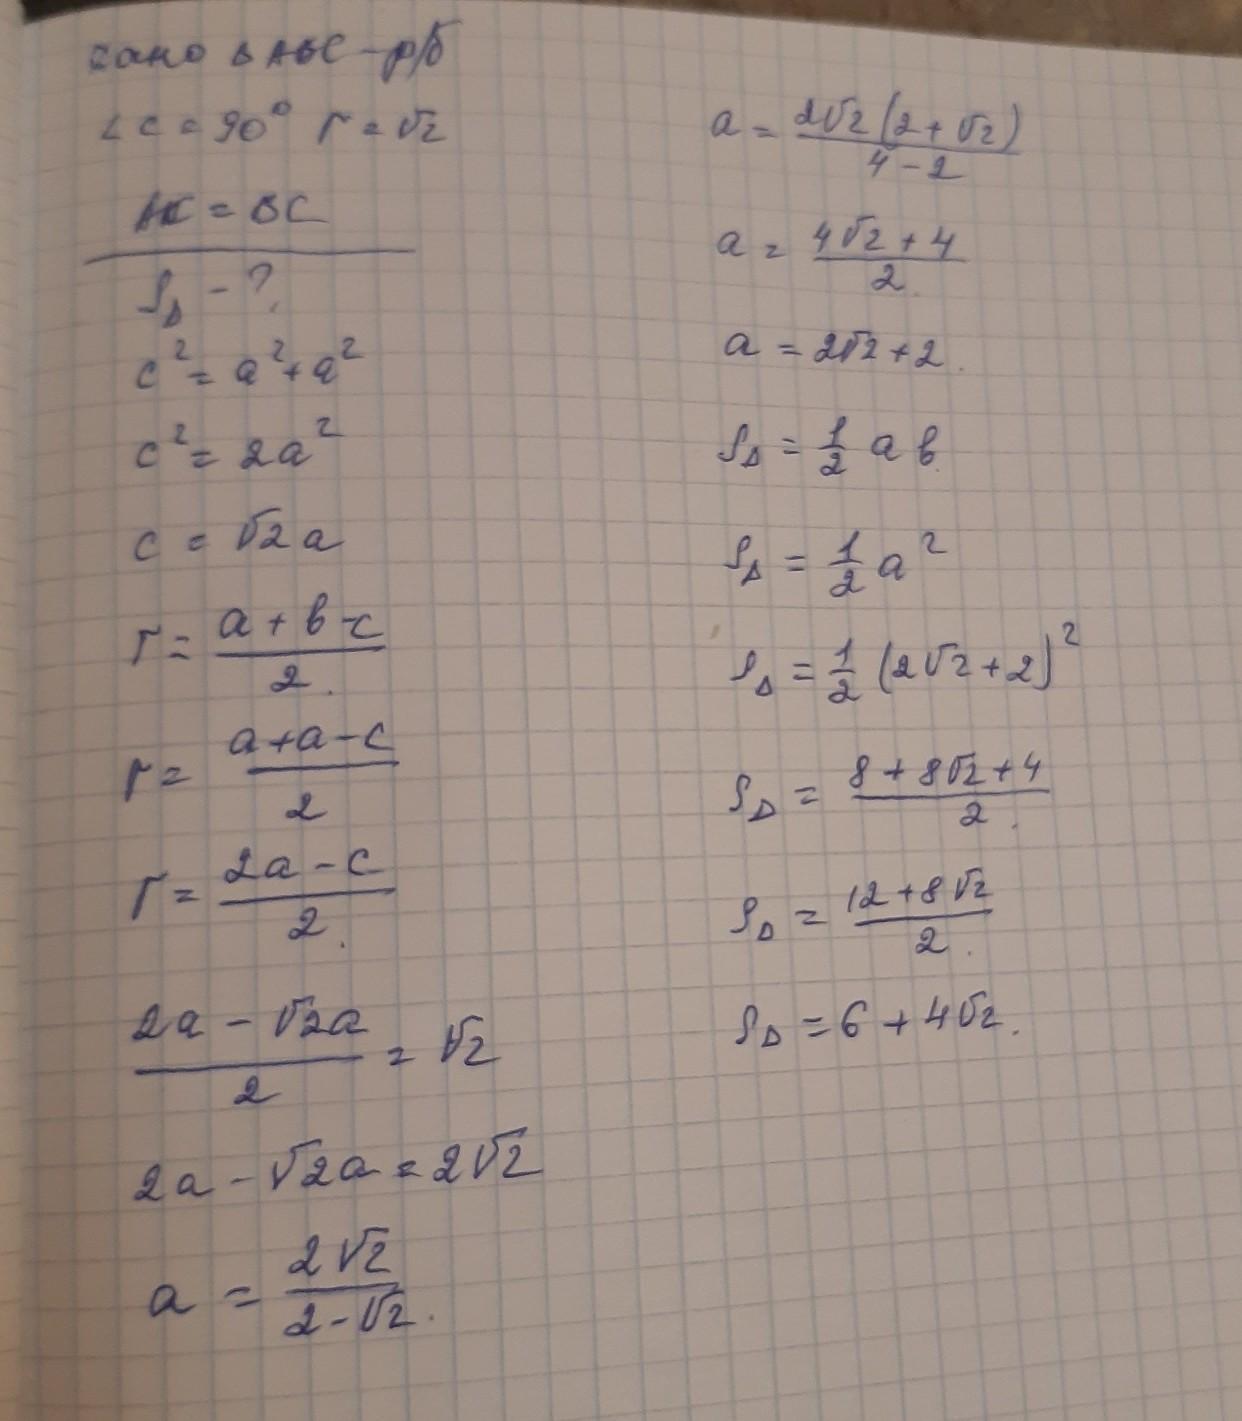 Дано Δ ABC - р/б
∠C = 90° r = √2
AC = BC
S_Δ - ?
c² = a² + a²
c² = 2a²
c = √2a
r = (a + b - c)/2
r = (a + a - c)/2
r = (2a - c)/2
(2a - √2a)/2 = √2
2a - √2a = 2√2
a = 2√2/(2 - √2)
a = 2√2(2 + √2)/(4 - 2)
a = (4√2 + 4)/2
a = 2√2 + 2
S_Δ = 1/2 ab
S_Δ = 1/2 a²
S_Δ = 1/2 (2√2 + 2)²
S_Δ = (8 + 8√2 + 4)/2
S_Δ = (12 + 8√2)/2
S_Δ = 6 + 4√2.